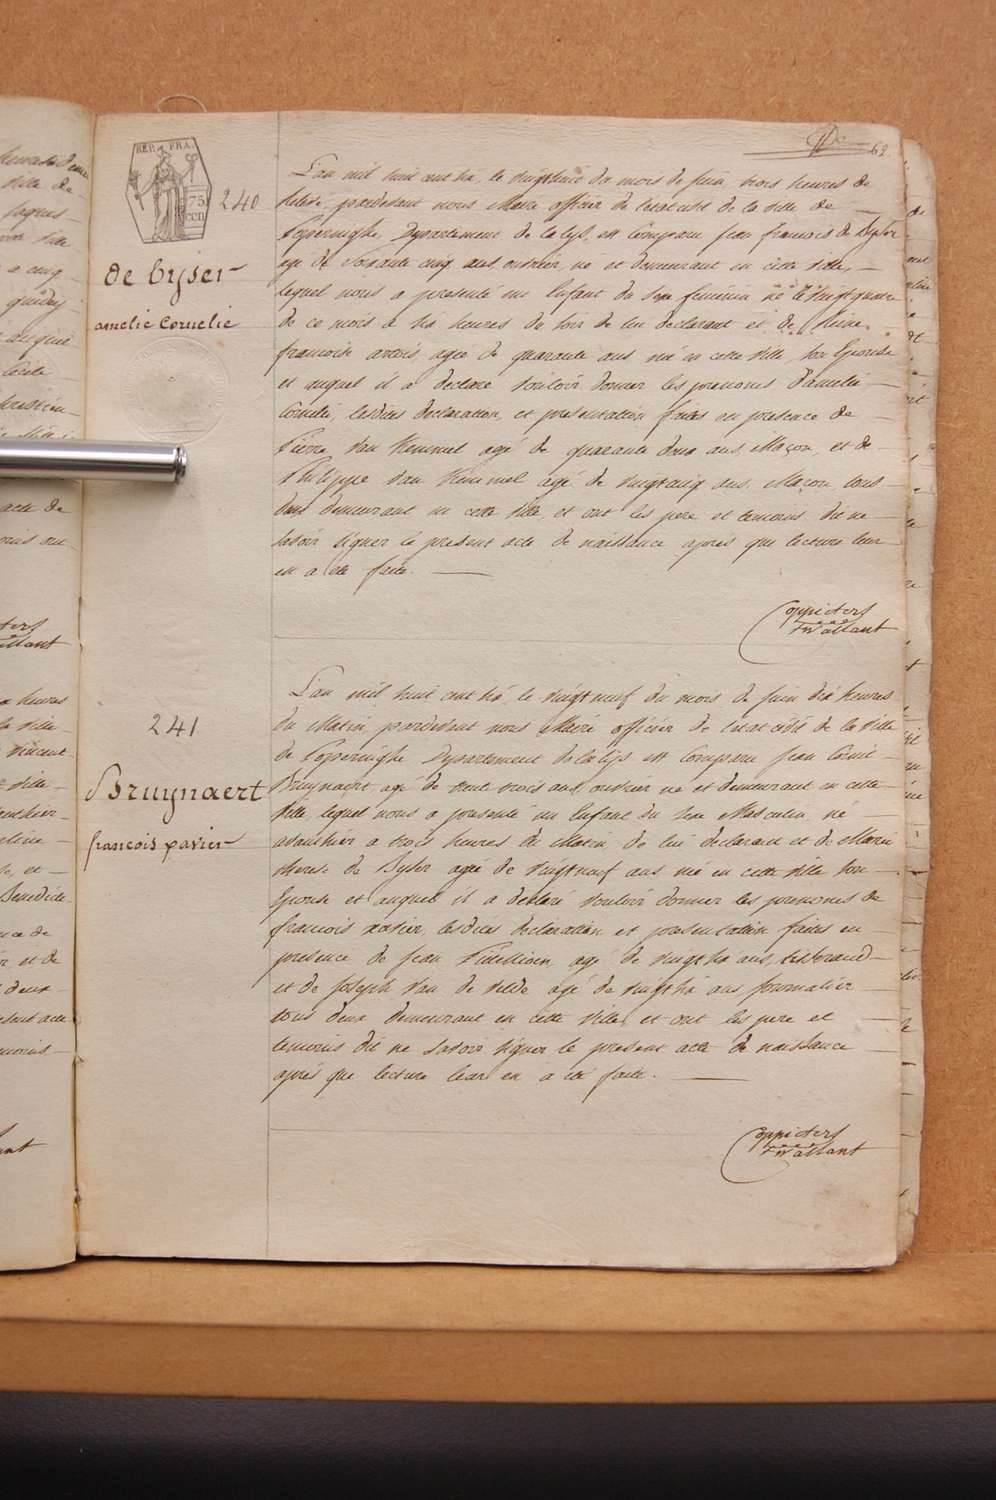 REP. FRA.
75 cen
62
240
de Cyser
amelie Cornelie
L'an mil huit cent six, le vingthuit du mois de Juin, trois heures de
relevée, pardevant nous Maire officier de l'état civil de la ville de
Poperinghe, Departement de la Lys, est Comparu Jean francois de Cyser
agé de soixante cinq ans, ouvrier, né et demeurant en cette ville,
lequel nous a presenté un Enfant du sexe feminin né le vingt quatre
de ce mois à six heures du soir de lui declarant et de
francoise agée de quarante ans née en cette ville, son Epouse
et auquel il a declaré vouloir donner les prenoms d'amelie
Cornelie, lesdites declaration et presentation faites en presence de
Pierre Van Kemmel agé de quarante deux ans, Maçon, et de
Philippe Van Kemmel agé de vingtcinq ans, Maçon, tous
deux demeurant en cette ville, et ont les pere et temoins dit ne
savoir signer le present acte de naissance après que lecture leur
en a été faite.
Coppieters
tWallant
241
Bruynaert
françois xavier
L'an mil huit cent six, le vingtneuf du mois de Juin dix heures
du Matin pardevant nous Maire officier de l'état civil de la ville
de Poperinghe Departement de la Lys est Comparu Jean
Bruynaert, agé de trente trois ans, ouvrier né et demeurant en cette
ville lequel nous a presenté un Enfant du sexe Masculin né
avanthier a trois heures du Matin, de lui declarant et de Marie
therese de Cyser agée de vingtneuf ans née en cette ville son
Epouse et auquel il a declaré vouloir donner les prenoms de
francois xavier, lesdites declaration et presentation faites en
presence de Jean agé de vingtsix ans,
et de Joseph Van de Velde agé de vingtsix ans journalier
tous deux demeurant en cette ville, et ont les pere et
temoins dit ne savoir signer le present acte de naissance
après que lecture leur en a été faite.
Coppieters
tWallant